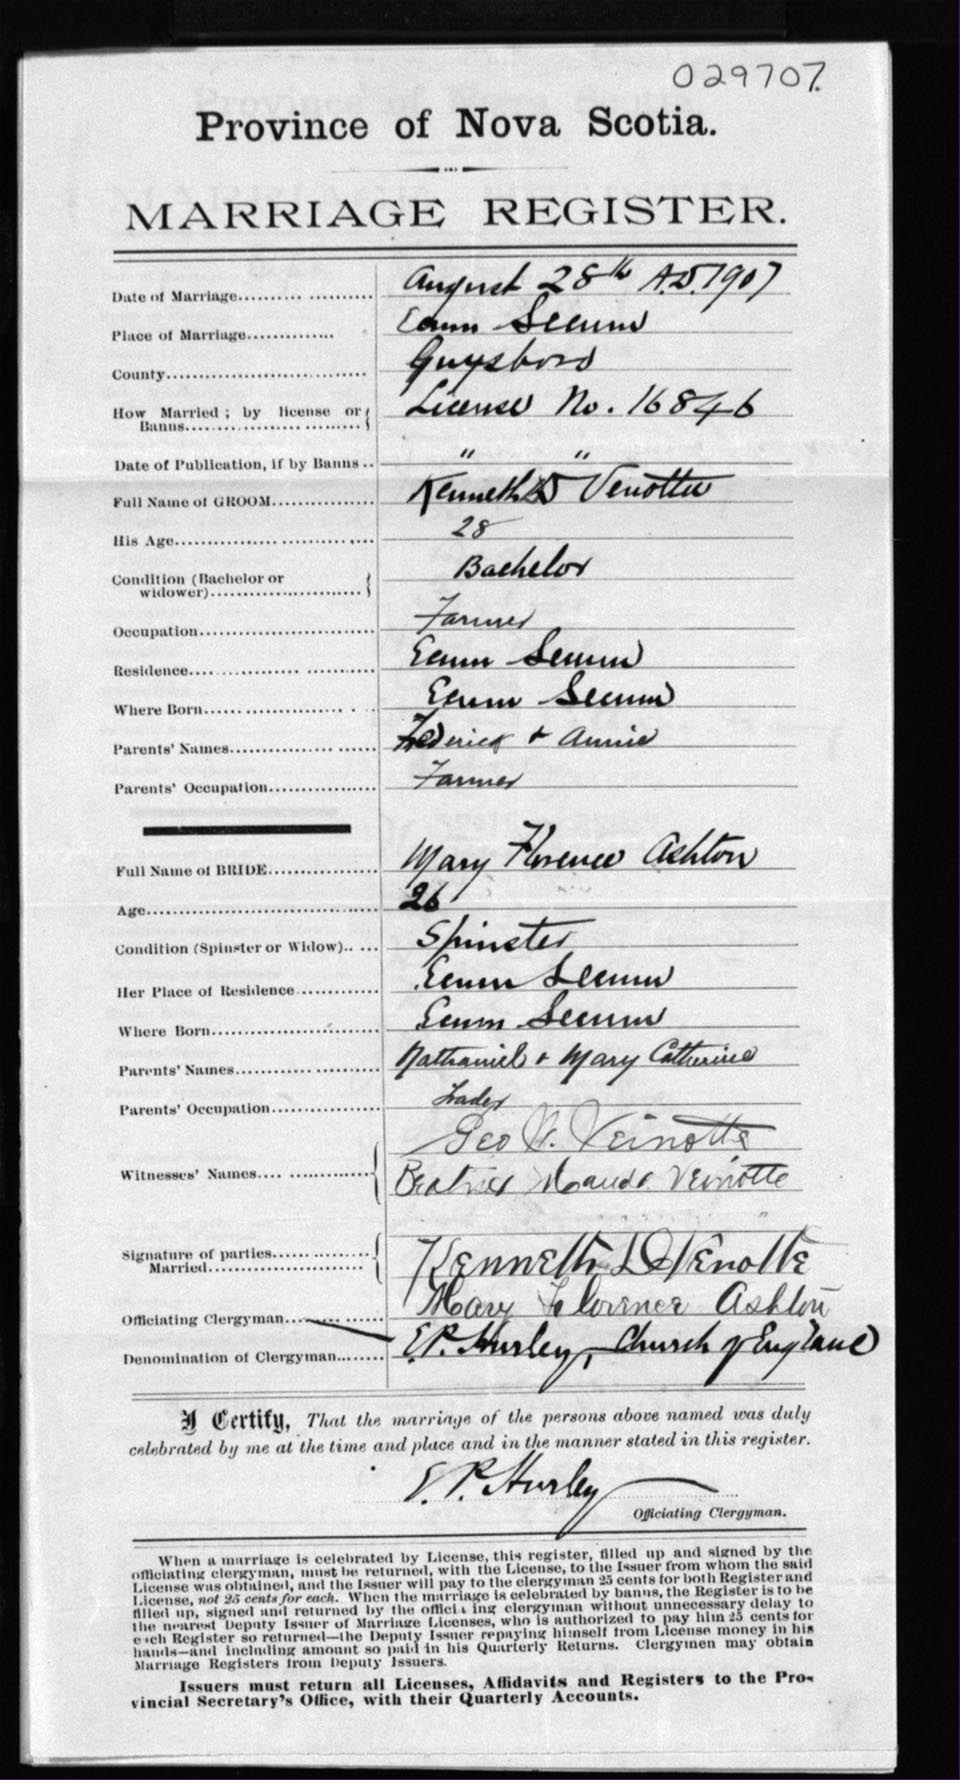 029707.
Province of Nova Scotia.
MARRIAGE REGISTER.
Date of Marriage.......... August 28th A.D. 1907
Place of Marriage............. Ecum Secum
County............................ Guysboro
How Married ; by license or License No. 16846
Banns............................
Date of Publication, if by Banns .. " "
Full Name of GROOM............... Kenneth D Venotte
His Age............................ 28
Condition (Bachelor or Bachelor
widower)............................
Occupation............................ Farmer
Residence............................ Ecum Secum
Where Born............................ Ecum Secum
Parents' Names...................... Frederick + Annie
Parents' Occupation................. Farmer
Full Name of BRIDE................. Mary Florence Ashton
Age............................ 26
Condition (Spinster or Widow)..... Spinster
Her Place of Residence............ Ecum Secum
Where Born............................ Ecum Secum
Parents' Names...................... Nathaniel + Mary Catherine
Parents' Occupation................. Trader
Geo Veinotte
Witnesses' Names.... ............. Beatrice Maude Veinotte
Signature of parties............... Kenneth D Venotte
Married............................ Mary Florence Ashton
Officiating Clergyman..............
Denomination of Clergyman........ E.P. Hurley, Church of England
I Certify, That the marriage of the persons above named was duly
celebrated by me at the time and place and in the manner stated in this register.
E. P. Hurley
Officiating Clergyman.
When a marriage is celebrated by License, this register, filled up and signed by the
officiating clergyman, must be returned, with the License, to the Issuer from whom the said
License was obtained, and the Issuer will pay to the clergyman 25 cents for both Register and
License, not 25 cents for each. When the marriage is celebrated by banns, the Register is to be
filled up, signed and returned by the officiating clergyman without unnecessary delay to
the nearest Deputy Issuer of Marriage Licenses, who is authorized to pay him 25 cents for
each Register so returned—the Deputy Issuer repaying himself from License money in his
hands—and including amount so paid in his Quarterly Returns. Clergymen may obtain
Marriage Registers from Deputy Issuers.
Issuers must return all Licenses, Affidavits and Registers to the Pro-
vincial Secretary's Office, with their Quarterly Accounts.